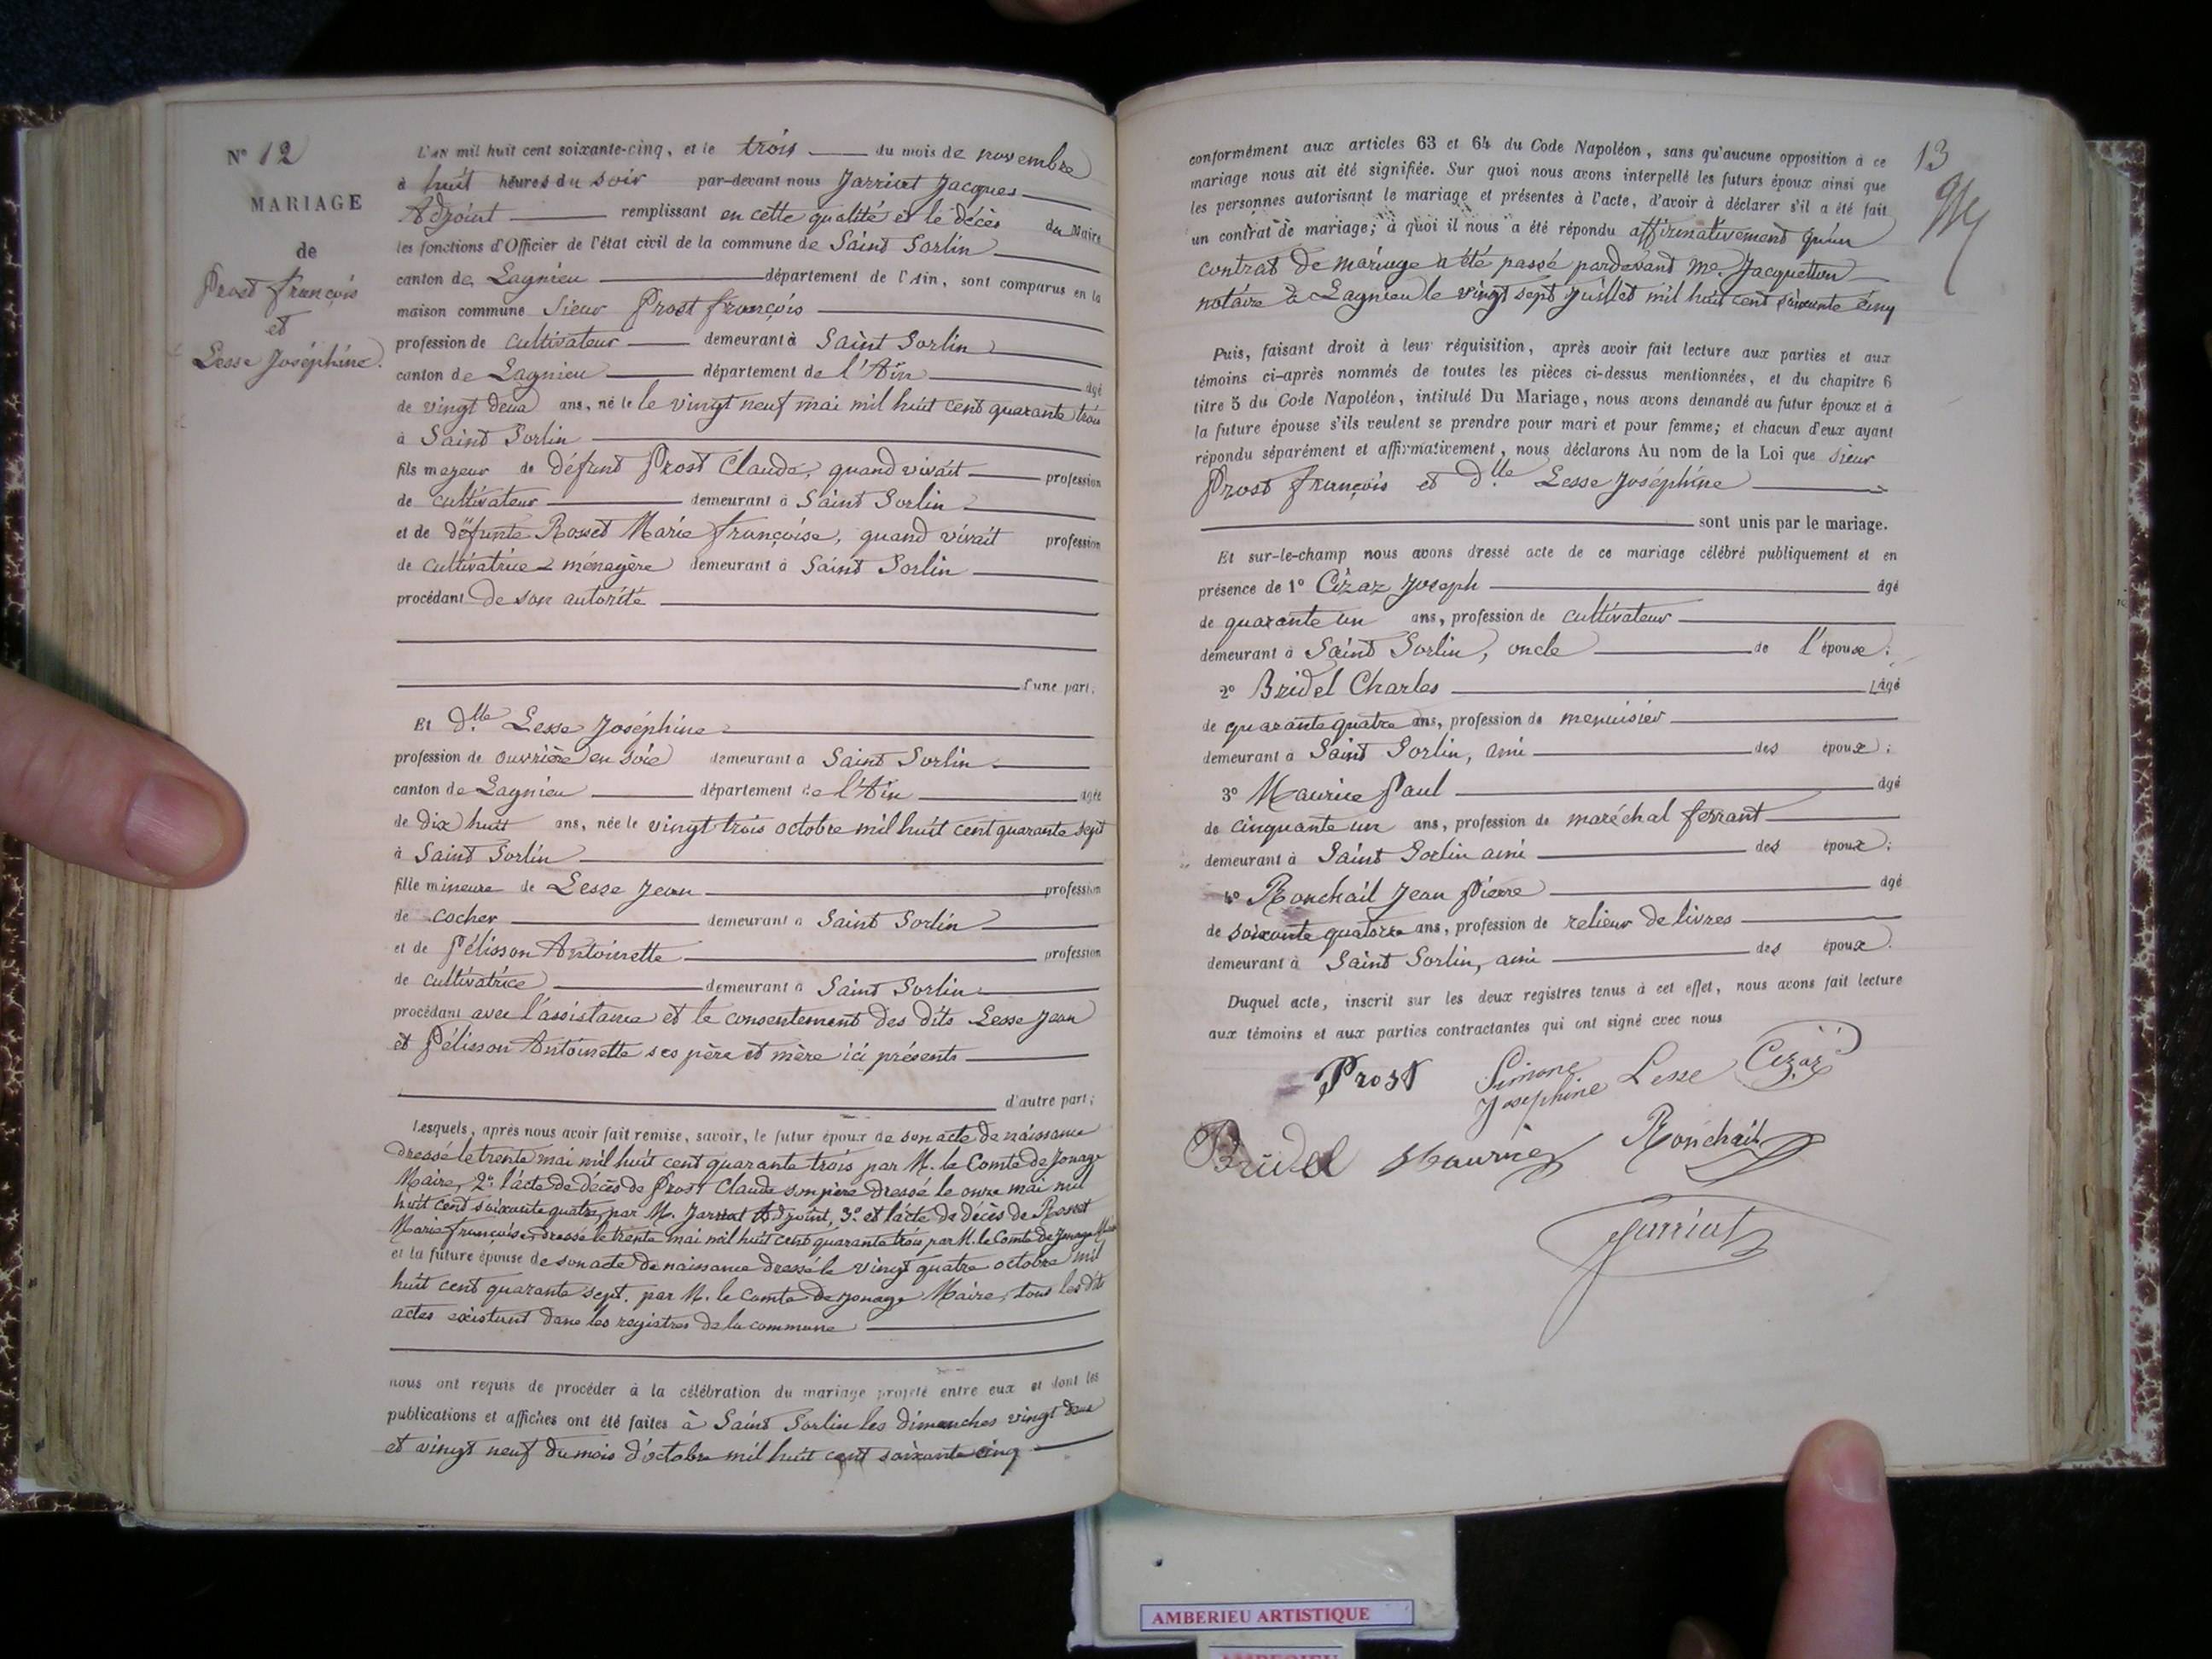 N° 12
MARIAGE
de
Prost françois
et
Lesse Joséphine.
L'AN mil huit cent soixante-cinq, et le trois du mois de novembre
à huit heures du soir par-devant nous Jarriat Jacques
Adjoint remplissant en cette qualité et le décès du Maire
les fonctions d'Officier de l'état civil de la commune de Saint Sorlin
canton de Lagnieu département de l'Ain, sont comparus en la
maison commune Sieur Prost françois
profession de cultivateur demeurant à Saint Sorlin
canton de Lagnieu département de l'Ain âgé
de vingt deux ans, né le le vingt neuf mai mil huit cent quarante trois
à Saint Sorlin
fils majeur de défunt Prost Claude, quand vivait profession
de cultivateur demeurant à Saint Sorlin
et de défunte Rosset Marie françoise, quand vivait profession
de cultivatrice ménagère demeurant à Saint Sorlin
procédant de son autorité
d'une part,
Et Dlle Lesse Joséphine
profession de ouvrière en soie demeurant à Saint Sorlin
canton de Lagnieu département de l'Ain âgée
de dix huit ans, née le vingt trois octobre mil huit cent quarante sept
à Saint Sorlin
fille mineure de Lesse Jean profession
de cocher demeurant à Saint Sorlin
et de Pélisson Antoinette profession
de cultivatrice demeurant à Saint Sorlin
procédant avec l'assistance et le consentement des dits Lesse Jean
et Pélisson Antoinette ses père et mère ici présents
d'autre part;
Lesquels, après nous avoir fait remise, savoir, le futur époux de son acte de naissance
dressé le trente mai mil huit cent quarante trois par M. le Comte de Jonage
Maire, 2° l'acte de décès de Prost Claude son père dressé le onze mai mil
huit cent soixante quatre, par M. Jarriat Adjoint, 3° et l'acte de décès de Rosset
Marie françoise, dressé le trente mai mil huit cent quarante trois par M. le Comte de Jonage Maire
et la future épouse de son acte de naissance dressé le vingt quatre octobre mil
huit cent quarante sept. par M. le Comte de Jonage Maire, tous les dits
actes existant dans les registres de la commune
nous ont requis de procéder à la célébration du mariage projeté entre eux et dont les
publications et affiches ont été faites à Saint Sorlin les dimanches vingt deux
et vingt neuf du mois d'octobre mil huit cent soixante cinq
13
conformément aux articles 63 et 64 du Code Napoléon, sans qu'aucune opposition à ce
mariage nous ait été signifiée. Sur quoi nous avons interpellé les futurs époux ainsi que
les personnes autorisant le mariage et présentes à l'acte, d'avoir à déclarer s'il a été fait
un contrat de mariage; à quoi il nous a été répondu affirmativement qu'un
contrat de mariage a été passé pardevant Me. Jacquetton
notaire à Lagnieu le vingt sept Juillet mil huit cent soixante cinq
Puis, faisant droit à leur réquisition, après avoir fait lecture aux parties et aux
témoins ci-après nommés de toutes les pièces ci-dessus mentionnées, et du chapitre 6
titre 5 du Code Napoléon, intitulé Du Mariage, nous avons demandé au futur époux et à
la future épouse s'ils veulent se prendre pour mari et pour femme; et chacun d'eux ayant
répondu séparément et affirmativement, nous déclarons Au nom de la Loi que sieur
Prost françois et dlle Lesse Joséphine
sont unis par le mariage.
Et sur-le-champ nous avons dressé acte de ce mariage célébré publiquement et en
présence de 1° Cizaz Joseph âgé
de quarante un ans, profession de cultivateur
demeurant à Saint Sorlin, oncle de l'épouse;
2° Bridel Charles âgé
de quarante quatre ans, profession de menuisier
demeurant à Saint Sorlin, ami des époux;
3° Maurice Paul âgé
de cinquante un ans, profession de maréchal ferrant
demeurant à Saint Sorlin ami des époux;
4° Ronchail Jean Pierre âgé
de soixante quatorze ans, profession de relieur de livres
demeurant à Saint Sorlin, ami des époux.
Duquel acte, inscrit sur les deux registres tenus à cet effet, nous avons fait lecture
aux témoins et aux parties contractantes qui ont signé avec nous
Prost Simone Lesse Cizaz
Josephine
Bridel Maurice Ronchail
Jarriat
AMBERIEU ARTISTIQUE
AMBERIEU